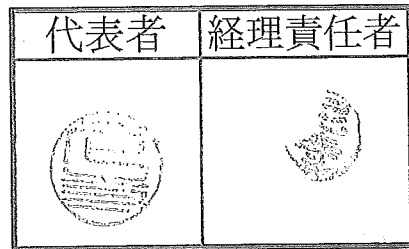 代表者
経理責任者